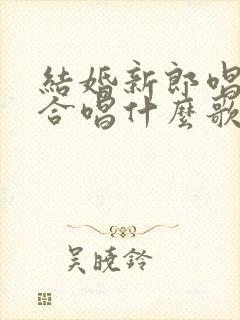 結婚新郎唱
合唱什麼歌
吴晓铃